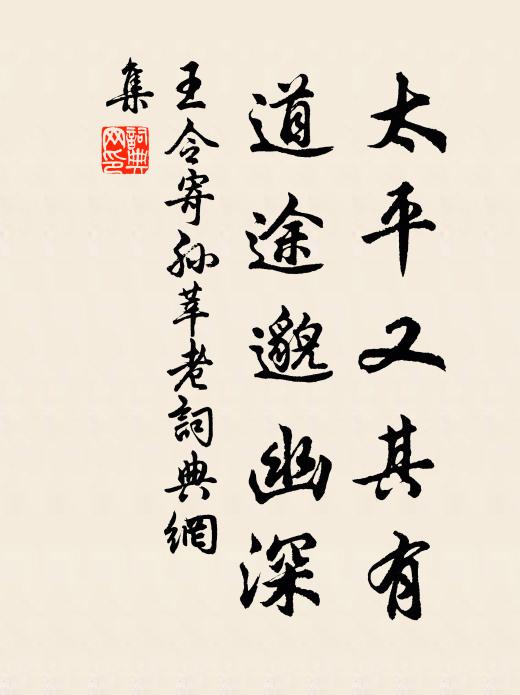 太平又其有
道途邈幽深
王令寄孙莘老詞典網
集
詞典
网印